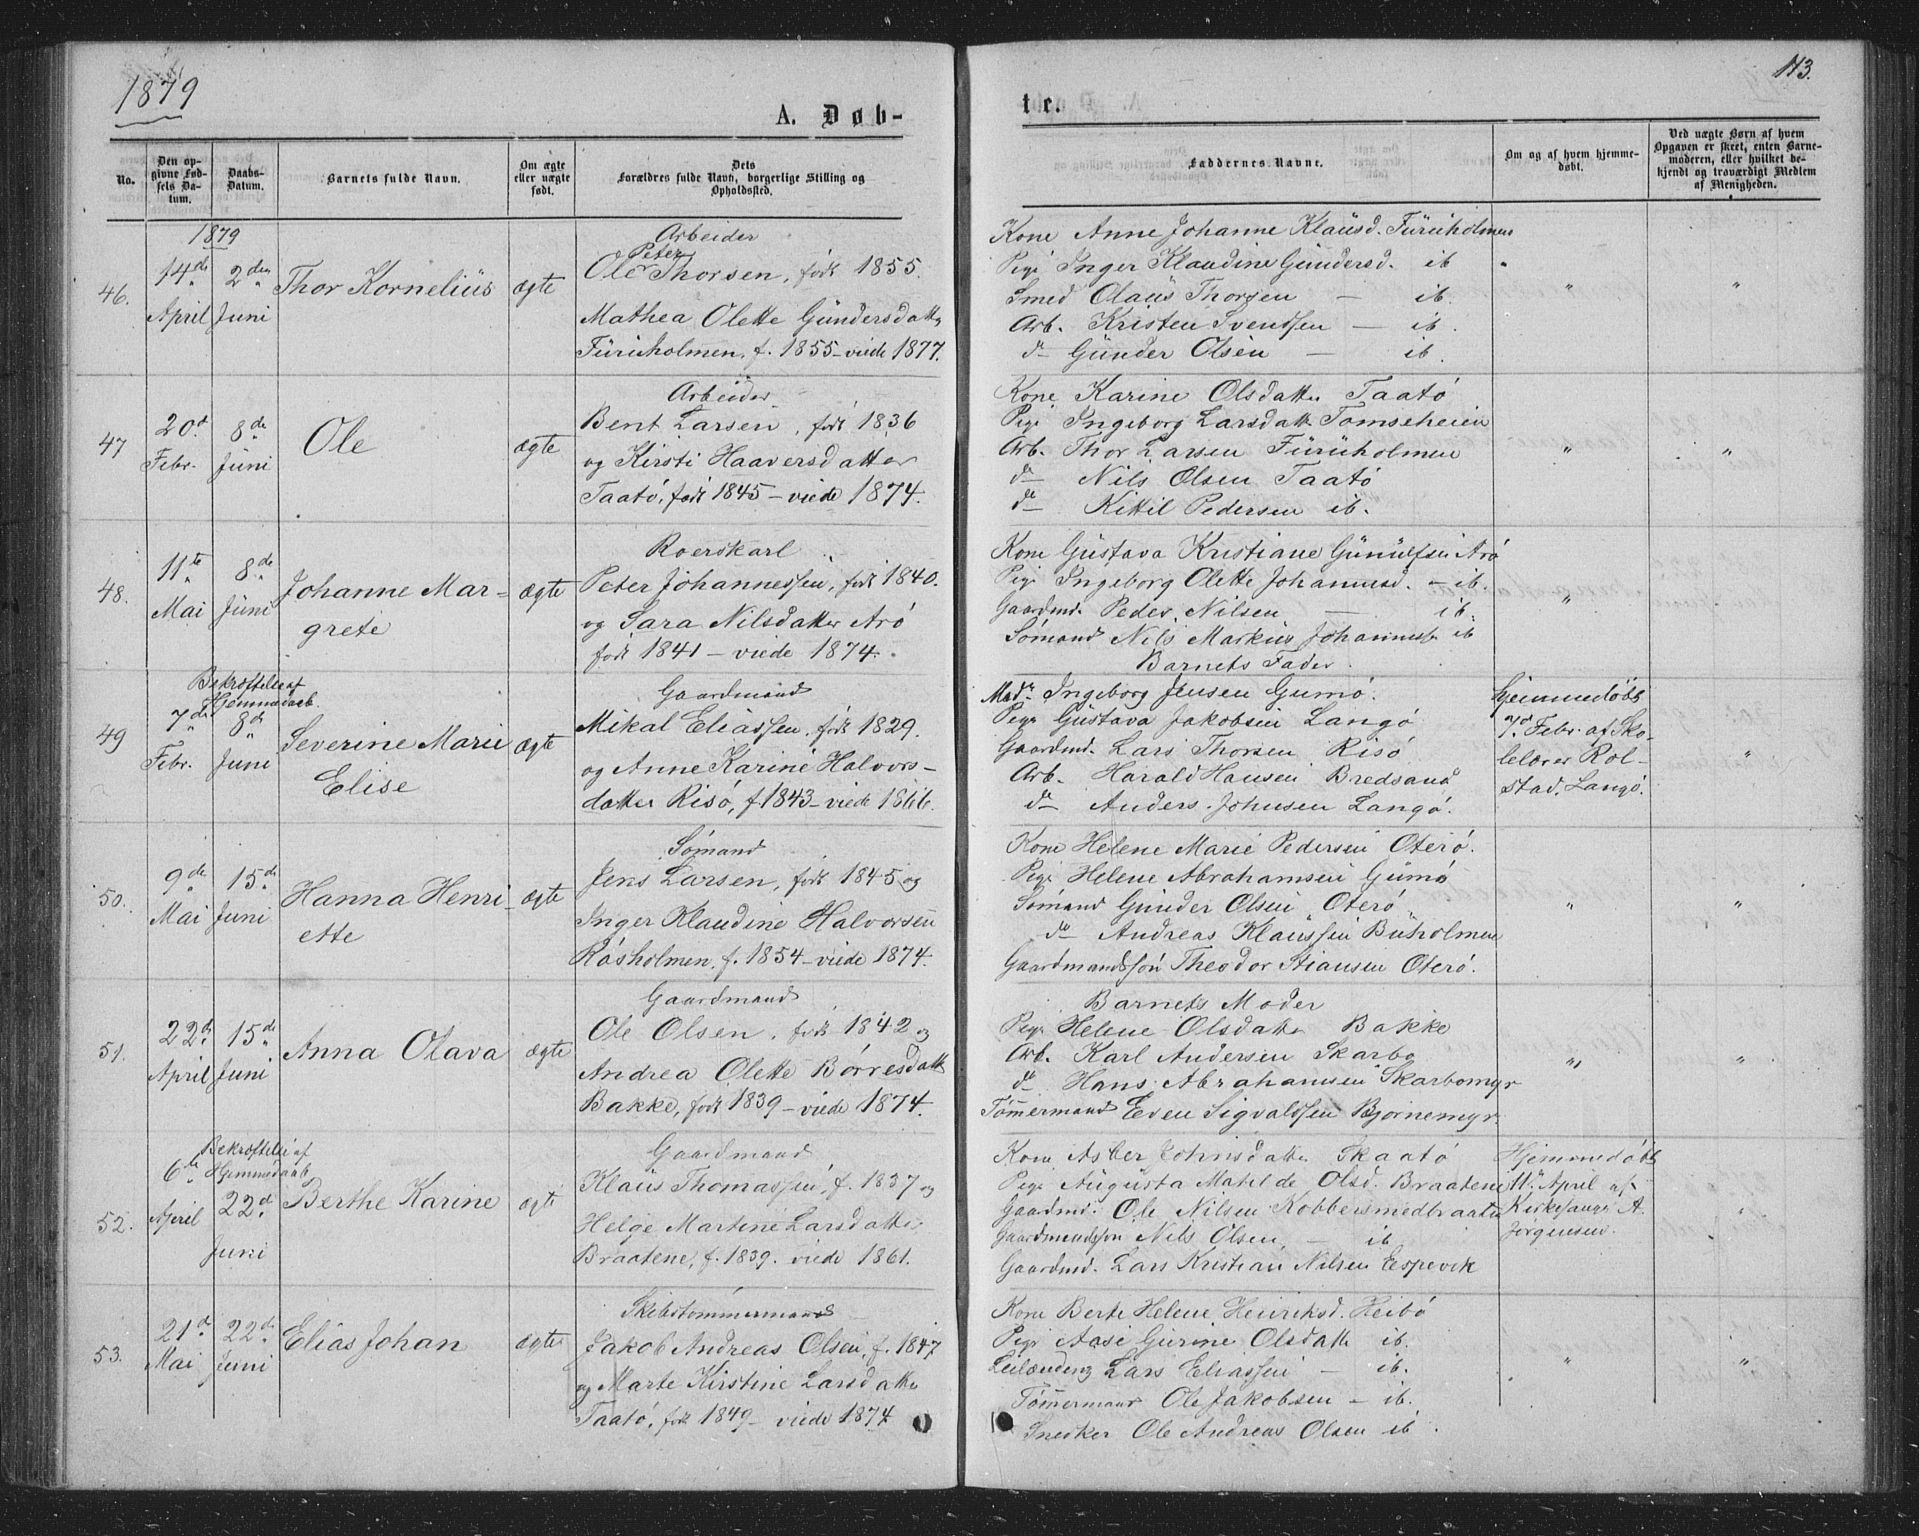 1879
113.
A. Døb-
te.
No.
Den op-
givne Fød-
sels Da-
tum.
Daabs-
Datum.
Barnets fulde Navn.
Om ægte
eller uægte
født.
Dets
Forældres fulde Navn, borgerlige Stilling og
Opholdssted.
Faddernes Navne.
Om og af hvem hjemme-
døbt.
Ved uægte Børn af hvem
Opgaven er skeet, enten Barne-
moderen, eller hvilket be-
kjendt og troværdigt Medlem
af Menigheden.
1879
46.
14de
April
2den
Juni
Thor Kornelius
ægte
Arbeider
Peter
Ole Thorsen, født 1855.
Mathea Olette Gundersdatter
Furuholmen, f. 1855 – viede 1877.
Kone Anne Johanne Klausd. Furuholmen
Pige Inger Klaudine Gundersd. ib
Smed Olaus Thorsen — ib.
Arb. Kristen Svendsen — ib.
do Gunder Olsen — ib.
" "
47
20de
Febr.
8de
Juni
Ole
ægte
Arbeider
Bent Larsen, født 1836
og Kirsti Haaversdatter
Taatø, født 1845 – viede 1874.
Kone Karine Olsdatter Taatø
Pige Ingeborg Larsdatt. Tomseheien
Arb. Thor Larsen Furuholmen
do Nils Olsen Taatø
do Kittil Pedersen ib.
" "
48.
11te
Mai
8de
Juni
Johanne Mar-
grete
ægte
Roerskarl
Peter Johannessen, født 1840.
og Sara Nilsdatter Arø
født 1841 – viede 1874.
Kone Gustava Kristiane Gunulfsen Arø
Pige Ingeborg Olette Johannesd. – ib.
Gaardmd. Peder Nilsen — ib.
Sømand Nils Markus Johannes. ib
Barnets Fader.
"
49
Bekræftelse af
Hjemmedaab.
7de
Febr.
8de
Juni
Severine Marie
Elise
ægte
Gaardmand
Mikal Eliassen, født 1829.
og Anne Karine Halvors-
datter Risø, f. 1843 – viede 1866.
Madm Ingeborg Jensen Gumø.
Pige Gustava Jakobsen Langø
Gaardmd. Lars Thorsen Risø
Arb. Harald Hansen Bredsand
do Anders Johnsen Langø.
Hjemmedøbt
7d. Febr. af Sko-
lelærer Rol-
stad, Langø.
"
50.
9de
Mai
15de
Juni
Hanna Henri-
ette
ægte
Sømand
Jens Larsen, født 1845 og
Inger Klaudine Halvorsen
Røsholmen, f. 1854 – viede 1874.
Kone Helene Marie Pedersen Oterø.
Pige Helene Abrahamsen Gumø
Sømand Gunder Olsen Oterø
do Andreas Klaussen Buholmen
Gaardmandssøn Theodor Stiansen Oterø.
" "
51.
22de
April
15de
Juni
Anna Olava
ægte
Gaardmand
Ole Olsen, født 1842 og
Andrea Olette Børresdatt
Bakke, født 1839 – viede 1874.
Barnets Moder
Pige Helene Olsdatter Bakke
Arb. Karl Andersen Skarbo
do Hans Abrahamsen Skarbomyr
Tømmermand Even Sigvaldsen Bjørnemyr.
" "
52.
Bekræftelse af
Hjemmedaab
6te
April
22de
Juni
Berthe Karine
ægte
Gaardmand
Klaus Thomassen, f. 1837 og
Helge Martine Larsdatter
Braatene, f. 1839. viede 1861.
Kone Asber Johnsdatter Skaatø
Pige Augusta Matilde Olsd. Braatene
Gaardmd. Ole Nilsen Kobbersmedbraaten
Gaardmandssøn Nils Olsen, – ib
Gaardmd. Lars Kristian Nilsen Espevik
Hjemmedøbt
11te April af
Kirkesanger A.
Jørgensen.
"
53.
21de
Mai
22de
Juni
Elias Johan
ægte
Skibstømmermand
Jakob Andreas Olsen, f. 1847
og Marte Kirstine Larsdatter
Taatø, født 1849 – viede 1874
Kone Berte Helene Henriksd. Heibø
Pige Aase Gurine Olsdatt ib.
Leilænding Lars Eliassen – ib.
Tømmermand Ole Jakobsen – ib.
Snedker Ole Andreas Olsen ib.
" "